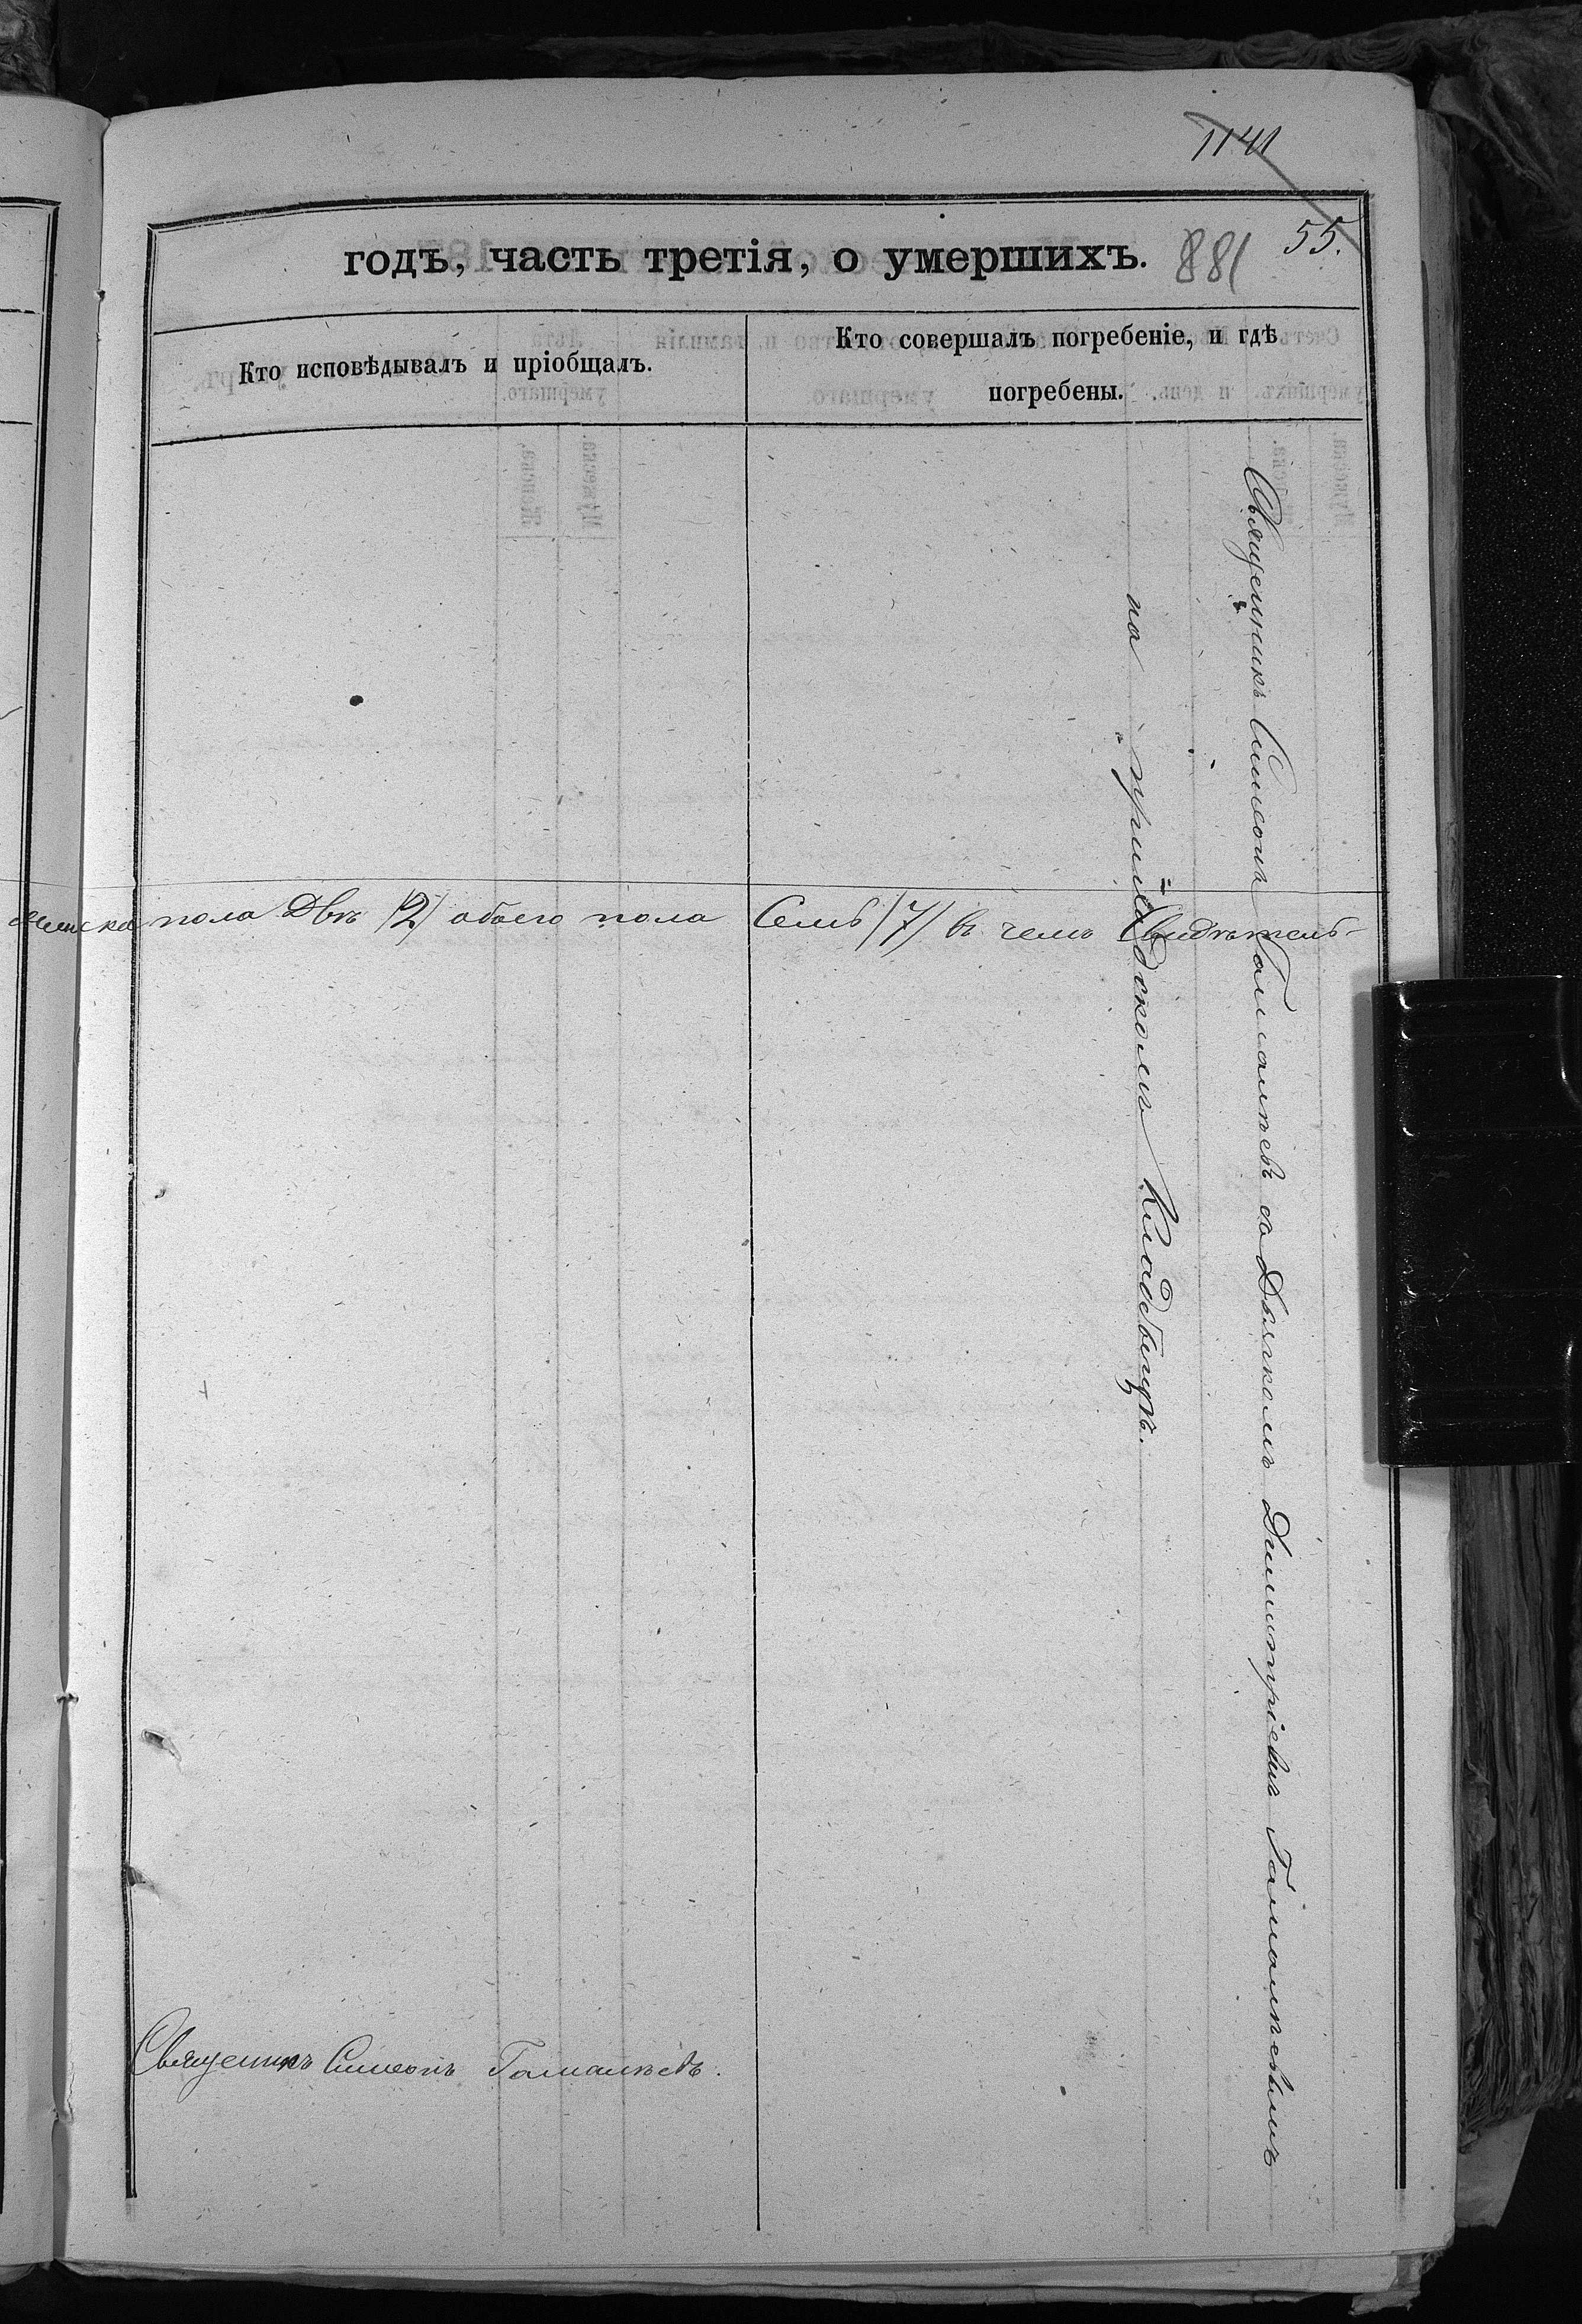 1141
55.
годъ, часть третія, о умершихъ. 881
Кто исповѣдывалъ и пріобщалъ.
Кто совершалъ погребеніе, и гдѣ
погребены.
Священникъ Симеонъ Гамалѣевъ со Дьячкомъ Димитріемъ Гамалѣевымъ
на приходскомъ Кладбищѣ.
женска пола Двѣ /2/ обоего пола Семь /7/ въ чемъ Свидѣтель-
Священникъ Симеонъ Гамалѣевъ.